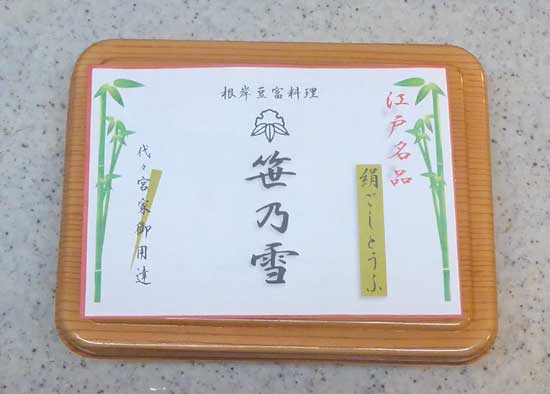 江戸名品
絹ごしとうふ
根岸豆富料理
笹乃雪
代々宮家御用達